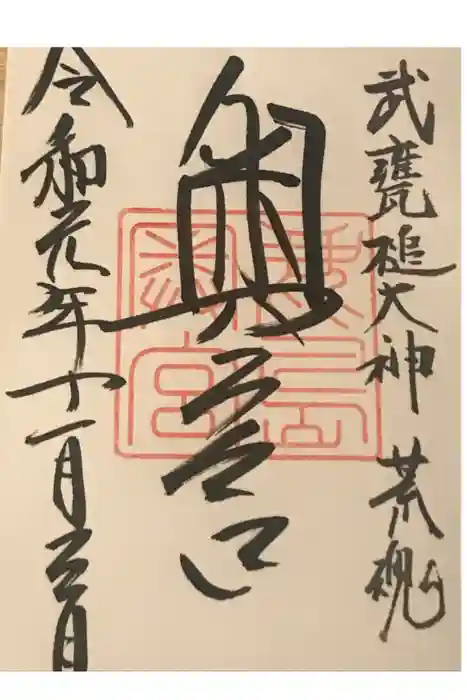 武甕槌大神 荒魂
奥宮
鹿島
奥宮
令和元年十一月三日